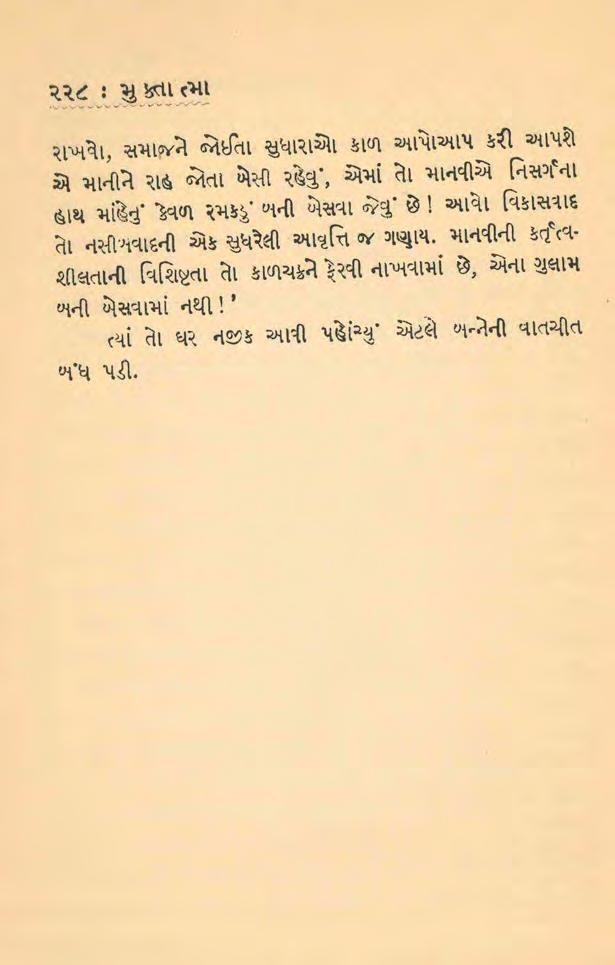 ૨૨૮ : મુક્તાત્મા
રાખવો, સમાજને જોઈતા સુધારાઓ કાળ આપોઆપ કરી આપશે
એ માનીને રાહ જોતા બેસી રહેવું, એમાં તો માનવીએ નિસર્ગના
હાથ માંહેનું કેવળ રમકડું બની બેસવા જેવું છે! આવો વિકાસવાદ
તો નસીબવાદની એક સુધરેલી આવૃત્તિ જ ગણાય. માનવીની કર્તૃત્વ-
શીલતાની વિશિષ્ટતા તો કાળચક્રને ફેરવી નાખવામાં છે, એના ગુલામ
બની બેસવામાં નથી!'
ત્યાં તો ઘર નજીક આવી પહોંચ્યું એટલે બન્નેની વાતચીત
બંધ પડી.